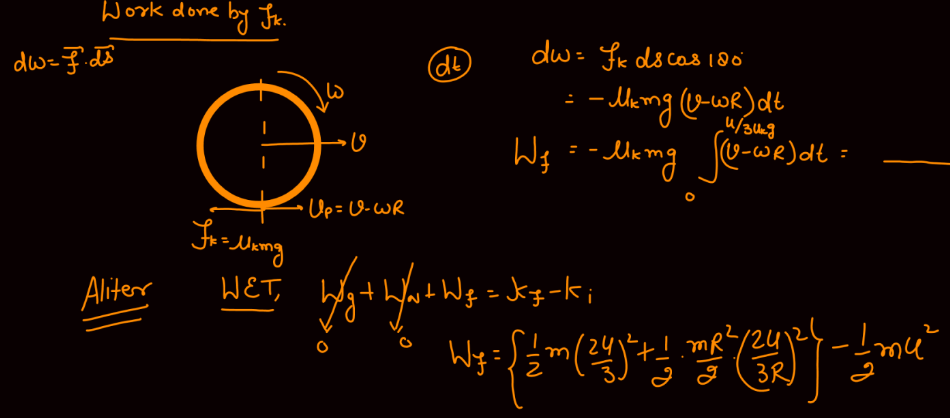 Work done by f_k.
dw = f⃗.ds⃗
ω
v
v_P = v-ωR
f_k = μ_k mg
(dt)
dw = f_k ds cos 180
= -μ_k mg (v-ωR) dt
W_f = -μ_k mg ∫_0^{u/3μ_k g} (v-ωR) dt = ____
Aliter WET, W_g + W_N + W_f = k_f - k_i
0 0
W_f = {1/2 m (2u/3)^2 + 1/2 . mR^2/2 (2u/3R)^2} - 1/2 mu^2